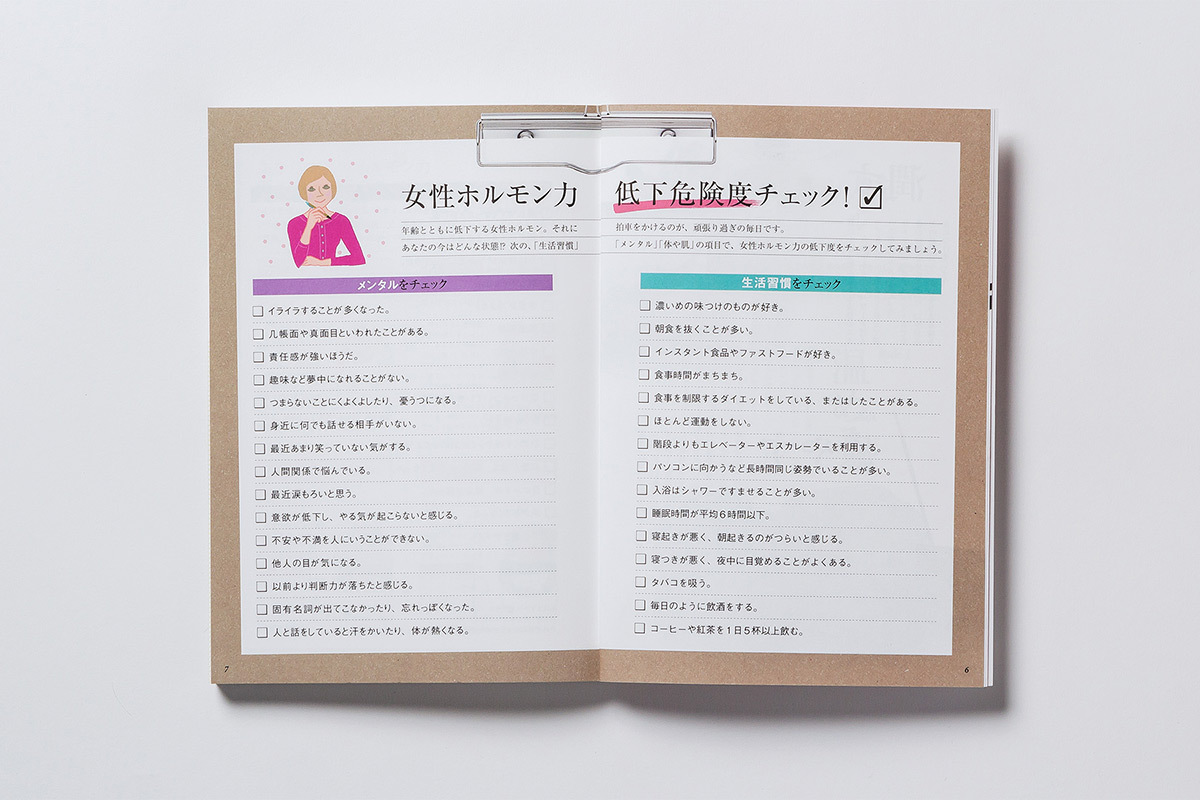 女性ホルモン力 低下危険度チェック!
年齢とともに低下する女性ホルモン。それに 拍車をかけるのが、頑張り過ぎの毎日です。
あなたの今はどんな状態!? 次の、「生活習慣」 「メンタル」「体や肌」の項目で、女性ホルモン力の低下度をチェックしてみましょう。
メンタルをチェック
イライラすることが多くなった。
几帳面や真面目といわれたことがある。
責任感が強いほうだ。
趣味など夢中になれることがない。
つまらないことにくよくよしたり、憂うつになる。
身近に何でも話せる相手がいない。
最近あまり笑っていない気がする。
人間関係で悩んでいる。
最近涙もろいと思う。
意欲が低下し、やる気が起こらないと感じる。
不安や不満を人にいうことができない。
他人の目が気になる。
以前より判断力が落ちたと感じる。
固有名詞が出てこなかったり、忘れっぽくなった。
人と話をしていると汗をかいたり、体が熱くなる。
7
生活習慣をチェック
濃いめの味つけのものが好き。
朝食を抜くことが多い。
インスタント食品やファストフードが好き。
食事時間がまちまち。
食事を制限するダイエットをしている、またはしたことがある。
ほとんど運動をしない。
階段よりもエレベーターやエスカレーターを利用する。
パソコンに向かうなど長時間同じ姿勢でいることが多い。
入浴はシャワーですませることが多い。
睡眠時間が平均6時間以下。
寝起きが悪く、朝起きるのがつらいと感じる。
寝つきが悪く、夜中に目覚めることがよくある。
タバコを吸う。
毎日のように飲酒をする。
コーヒーや紅茶を1日5杯以上飲む。
6